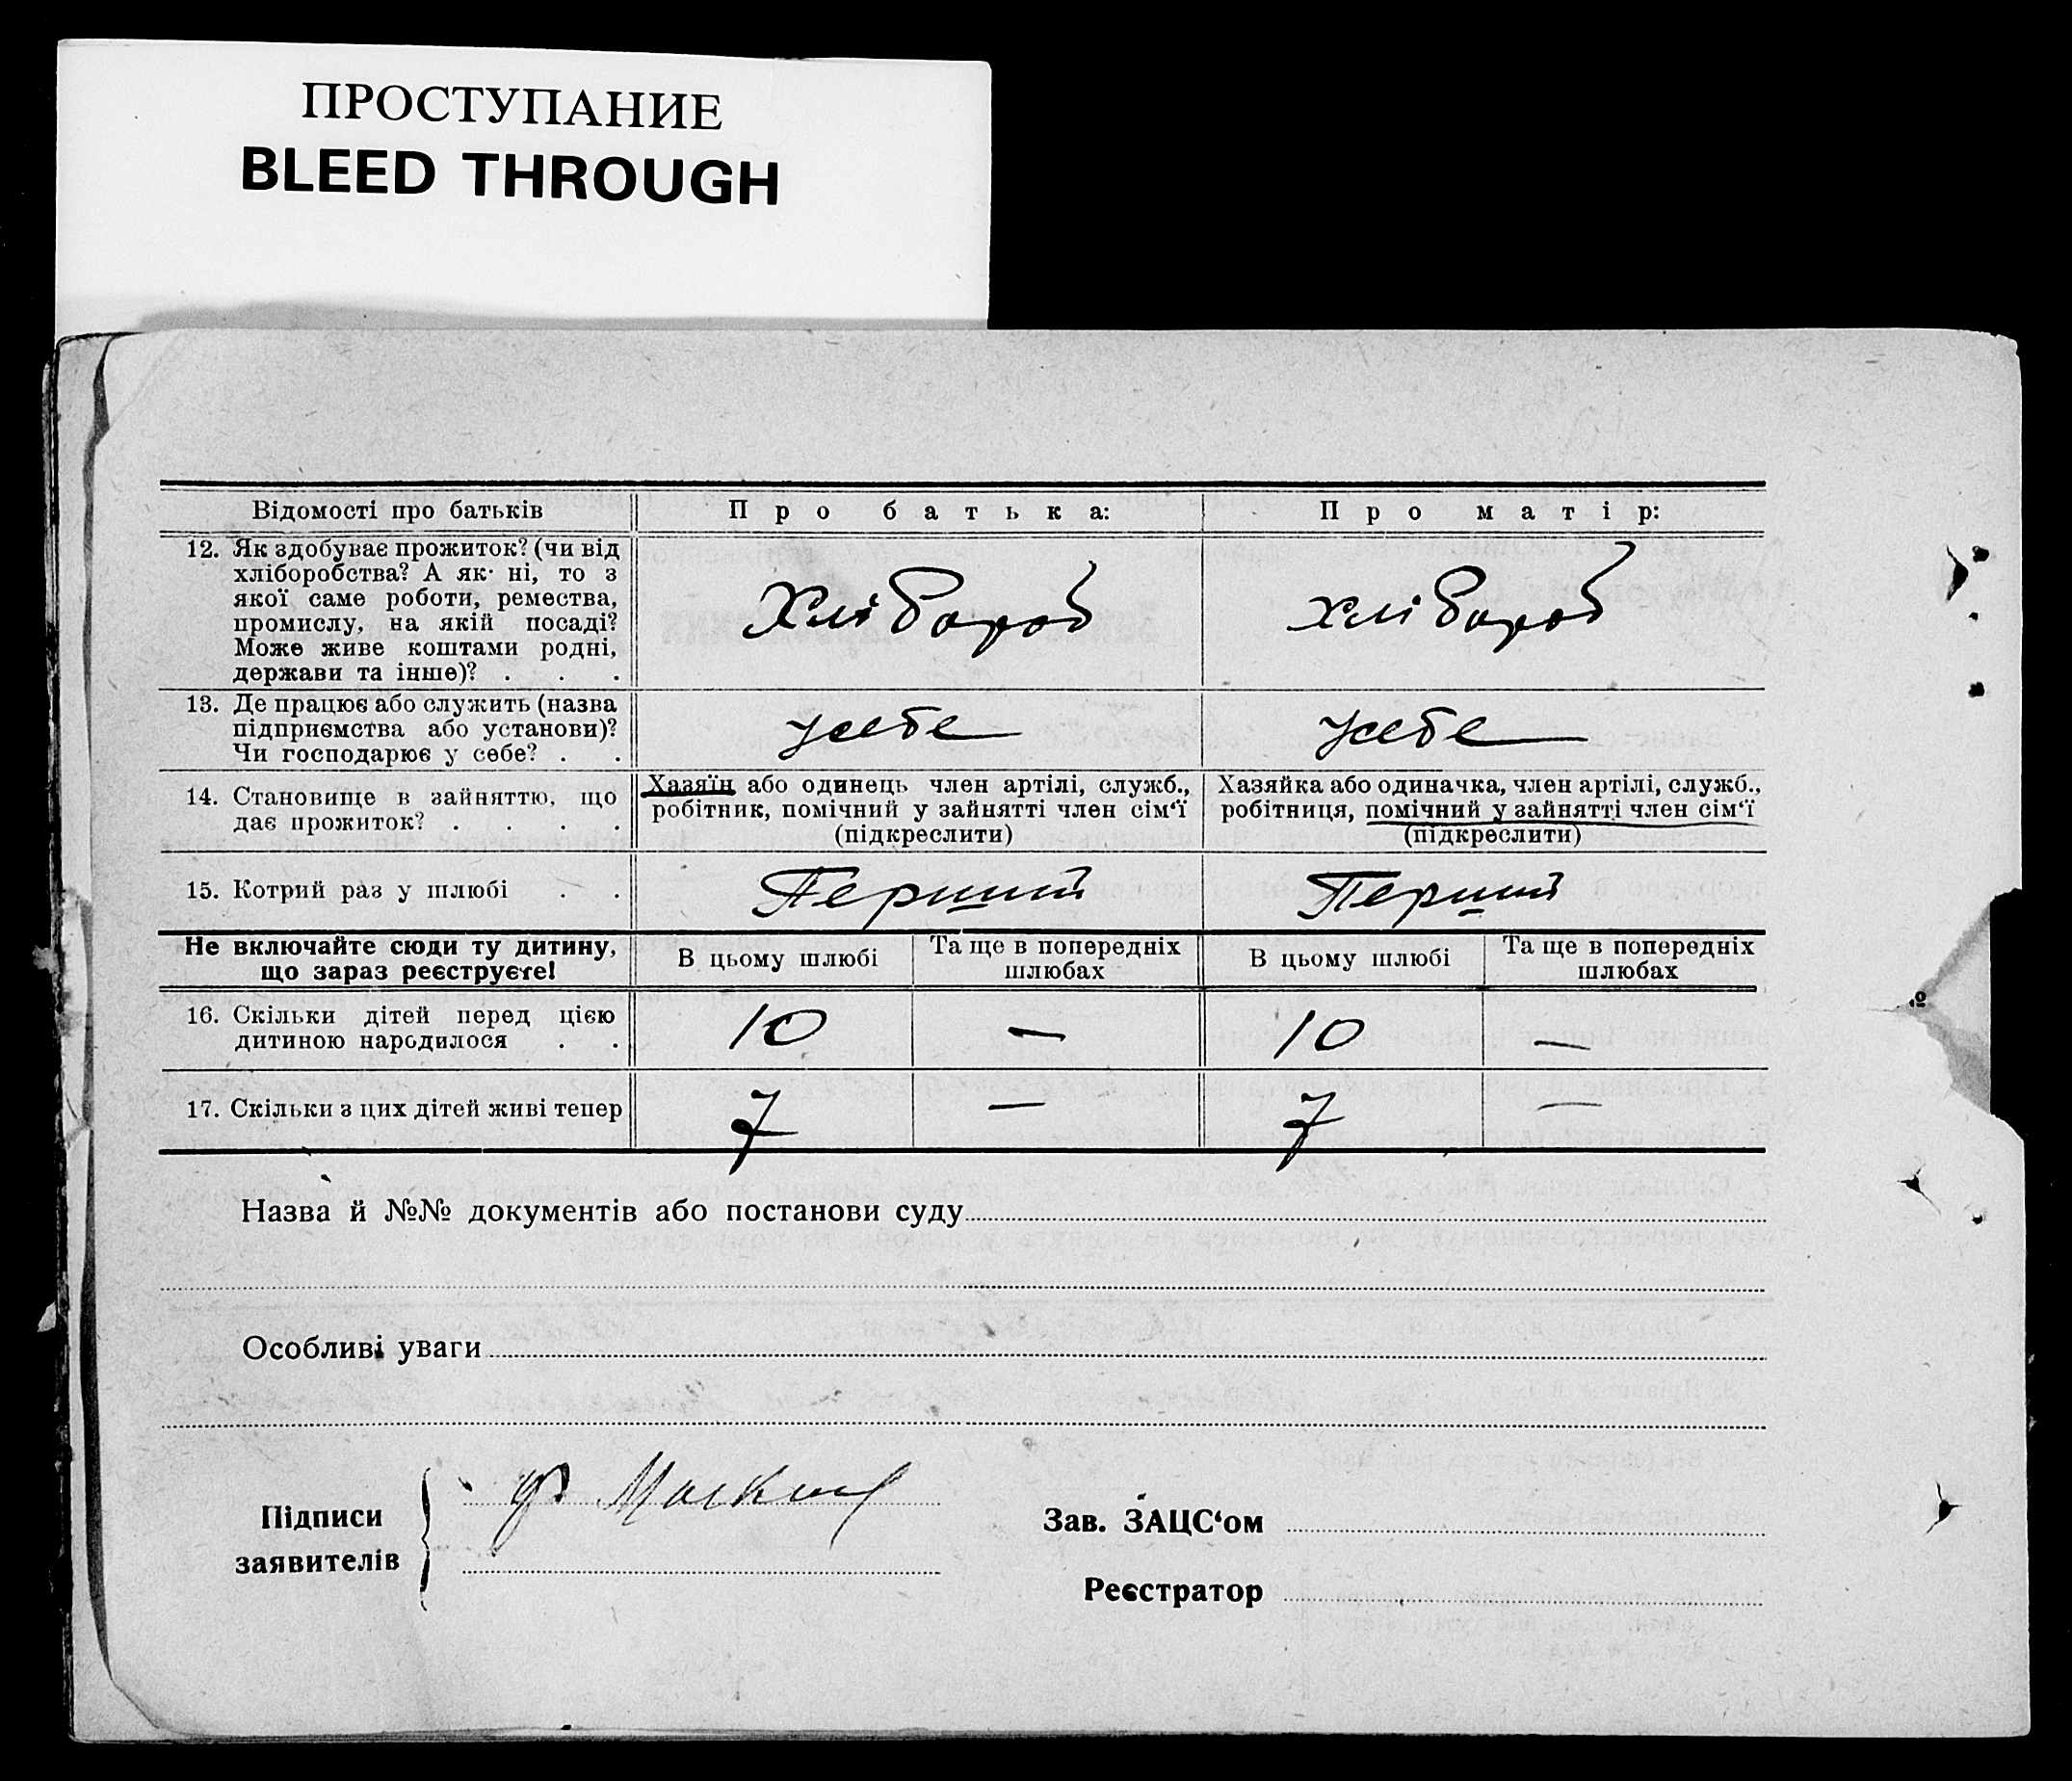 ПРОСТУПАНИЕ
BLEED THROUGH
Відомості про батьків
Про батька:
Про матір:
12. Як здобуває прожиток? (чи від
хліборобства? А як ні, то з
якої саме роботи, ремества,
промислу, на якій посаді?
Може живе коштами родні,
держави та інше)? . . .
Хлібороб
хлібороб
13. Де працює або служить (назва
підприємства або установи)?
Чи господарює у себе? . .
усебе
усебе
14. Становище в зайняттю, що
дає прожиток? . . . .
Хазяїн або одинець член артілі, служб.,
робітник, помічний у зайнятті член сім‘ї
(підкреслити)
Хазяйка або одиначка, член артілі, служб.,
робітниця, помічний у зайнятті член сім‘ї
(підкреслити)
15. Котрий раз у шлюбі . .
Перший
Перший
Не включайте сюди ту дитину,
що зараз реєструєте!
В цьому шлюбі
Та ще в попередніх
шлюбах
В цьому шлюбі
Та ще в попередніх
шлюбах
16. Скільки дітей перед цією
дитиною народилося . .
10
—
10
—
17. Скільки з цих дітей живі тепер
7
—
7
—
Назва й №№ документів або постанови суду
Особливі уваги
Підписи
заявителів
Зав. ЗАЦС‘ом
Реєстратор